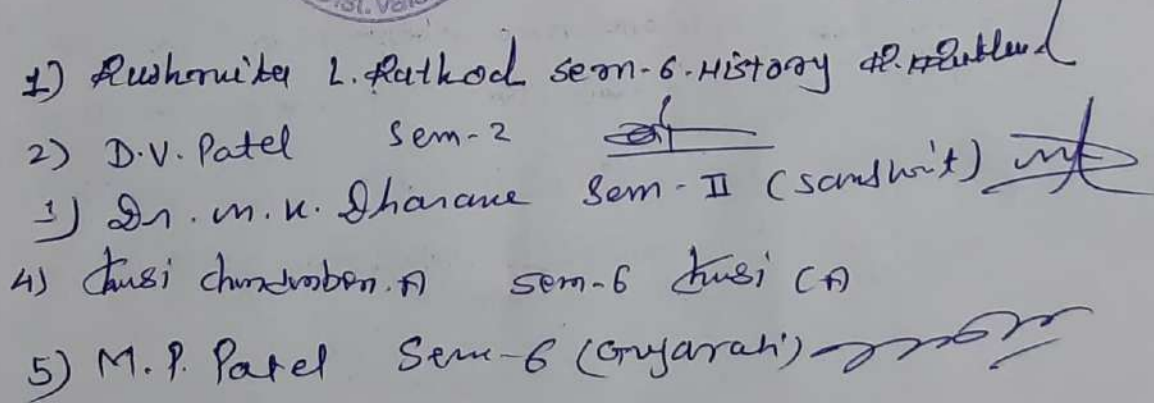 Dist. Vals
1) Rushmita L. Rathod Sem-6. History R. Rathod
2) D.V. Patel Sem-2
3) Dr. M. K. Dharane Sem-II (Sanskrit)
4) Chandraben. A Sem-6 CA
5) M. P. Patel Sem-6 (Gujarati)